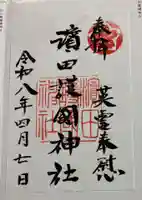 奉拝
英霊奉慰
濱田護國神社
令和八年四月七日